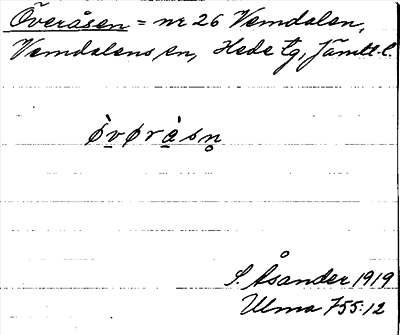 Överåsen = nr 26 Vemdalen,
Vemdalens sn, Hede tg, Jämtl. l.
ø̀v̲ørà̲sn̥
S. Åsander 1919
Ulma 755:12